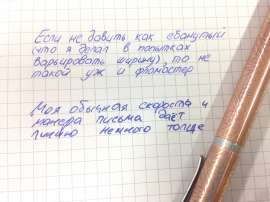 Если не давить как ебанутый
(что я делал в попытках
варьировать ширину), то не
такой уж и фломастер
Моя обычная скорость и
манера письма даёт
линию немного толще